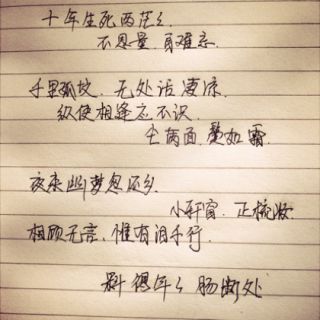 十年生死两茫々
不思量.自难忘
千里孤坟.无处话凄凉.
纵使相逢应不识
尘满面 鬓如霜.
夜来幽梦忽还乡
小轩窗.正梳妆
相顾无言.惟有泪千行.
料得年々 肠断处